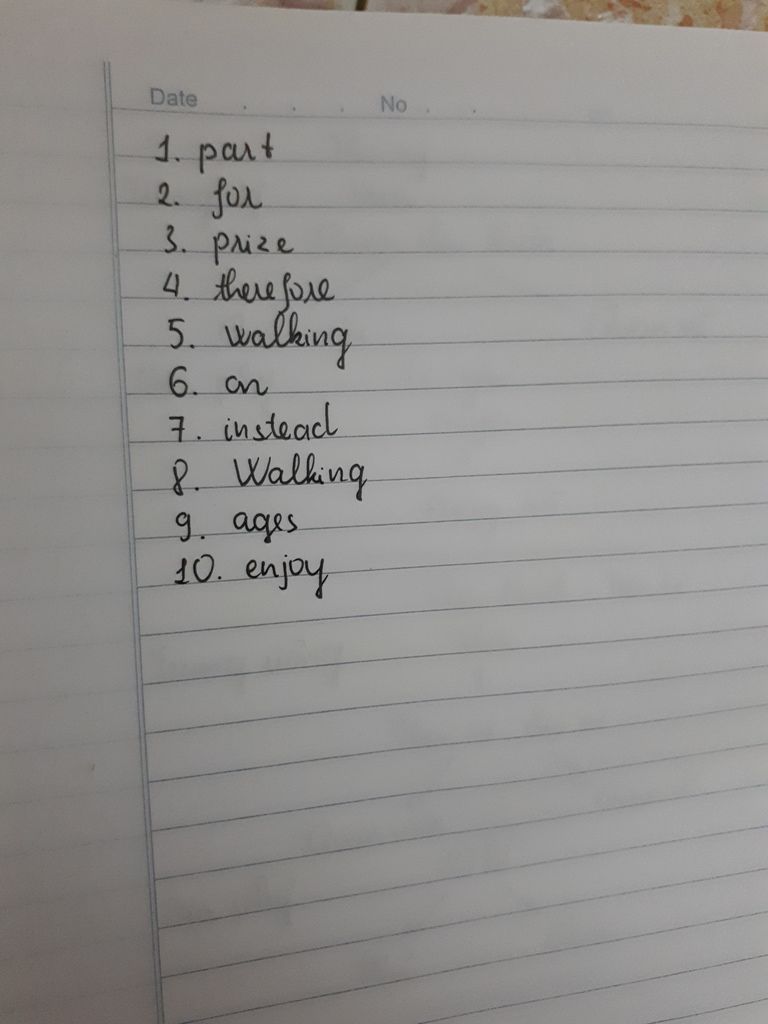 Date . . . No . .
1. part
2. for
3. prize
4. therefore
5. walking
6. on
7. instead
8. Walking
9. ages
10. enjoy